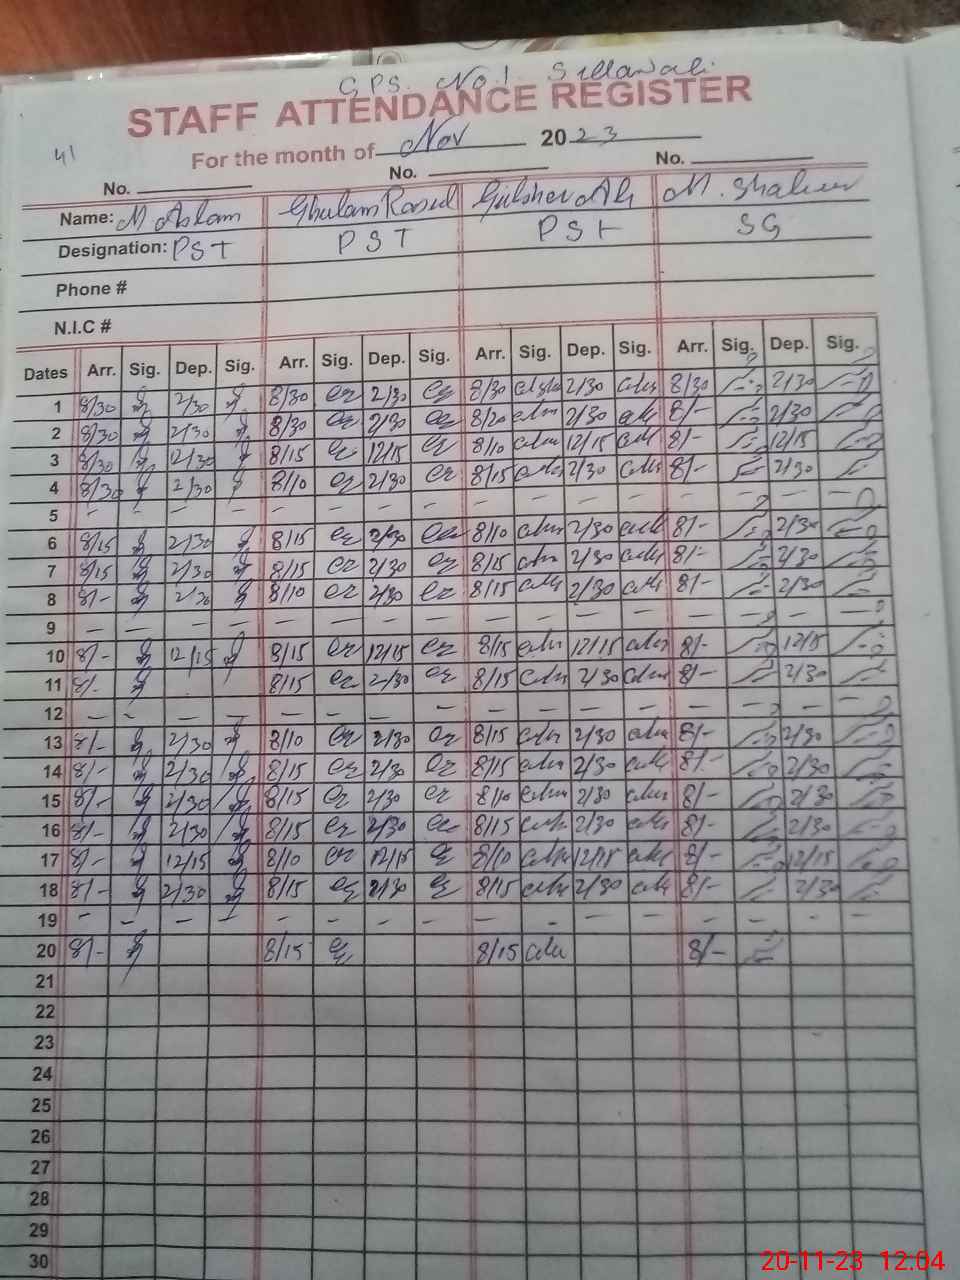 GPS. No 1. Sillanwali
STAFF ATTENDANCE REGISTER
41 For the month of Nov 2023
No. No. No.
Name: M Aslam Ghulam Rasul Gulsher Ali M. Shaheer
Designation: PST PST PST SG
Phone #
N.I.C #
Dates Arr. Sig. Dep. Sig. Arr. Sig. Dep. Sig. Arr. Sig. Dep. Sig. Arr. Sig. Dep. Sig.
1 8/30 2/30 8/30 2/30 8/30 2/30 8/30 2/30
2 8/30 2/30 8/30 2/30 8/20 2/30 8/- 2/30
3 8/30 12/30 8/15 12/15 8/10 12/15 8/- 12/15
4 8/30 2/30 8/10 2/30 8/15 2/30 8/- 2/30
5 - - - - - - - - - - - - - - - -
6 8/15 2/30 8/15 2/30 8/10 2/30 8/- 2/30
7 8/15 2/30 8/15 2/30 8/15 2/30 8/- 2/30
8 8/- 2/30 8/10 2/30 8/15 2/30 8/- 2/30
9 - - - - - - - - - - - - - - - -
10 8/- 12/15 8/15 12/15 8/15 12/15 8/- 12/15
11 8/- 8/15 2/30 8/15 2/30 8/- 2/30
12 - - - - - - - - - - - - - - - -
13 8/- 2/30 8/10 2/30 8/15 2/30 8/- 2/30
14 8/- 2/30 8/15 2/30 8/15 2/30 8/- 2/30
15 8/- 2/30 8/15 2/30 8/10 2/30 8/- 2/30
16 8/- 2/30 8/15 2/30 8/15 2/30 8/- 2/30
17 8/- 12/15 8/10 12/15 8/10 12/15 8/- 12/15
18 8/- 2/30 8/15 2/30 8/15 2/30 8/- 2/30
19 - - - - - - - - - - - - - - - -
20 8/- 8/15 8/15 8/-
21
22
23
24
25
26
27
28
29
30
20-11-23 12:04